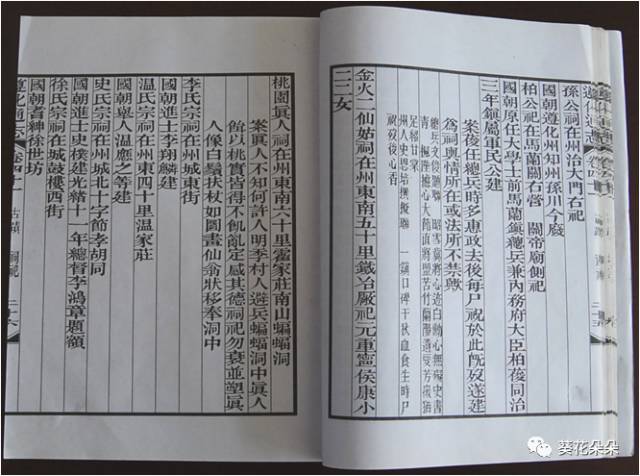 孫公祠在州治大門右祀
國朝遵化州知州孫川今廢
柏公祠在馬蘭關右營 關帝廟側祀
國朝原任大學士前馬蘭鎮總兵兼內務府大臣柏葰同治
三年鎮屬軍民公建
案葰任總兵時多惠政去後每尸祝於此旣歿遂建
為祠輿情所在或法所不禁歟
金火二仙姑祠在州東南五十里鐵冶厰祀元重甯侯康小
二二女
桃園眞人祠在州東南六十里霍家莊南山蝙蝠洞
案眞人不知何許人明季村人避兵蝙蝠洞中眞人
飴以桃實皆得不飢亂定感其德祠祀勿衰並塑眞
人像白鬚扶杖如圖畫仙翁狀移奉洞中
李氏宗祠在州城東街
國朝進士李翔麟建
温氏宗祠在州東四十里温家莊
國朝舉人温應之等建
史氏宗祠在州城北十字節孝胡同
國朝進士史樸建光緒十一年總督李鴻章題額
徐氏宗祠在城鼓樓西街
國朝耆紳徐世坊
遵化通志 卷四十一 古蹟 祠祀 二十六
葵花朵朵